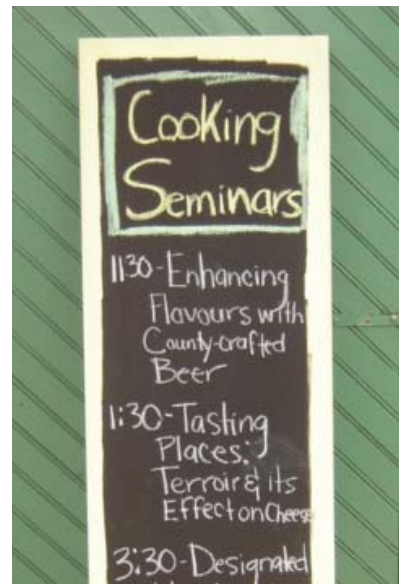 Cooking
Seminars
1130-Enhancing
Flavours with
County-crafted
Beer
1:30-Tasting
Places:
Terroir & its
Effect on Cheese
3:30-Designated